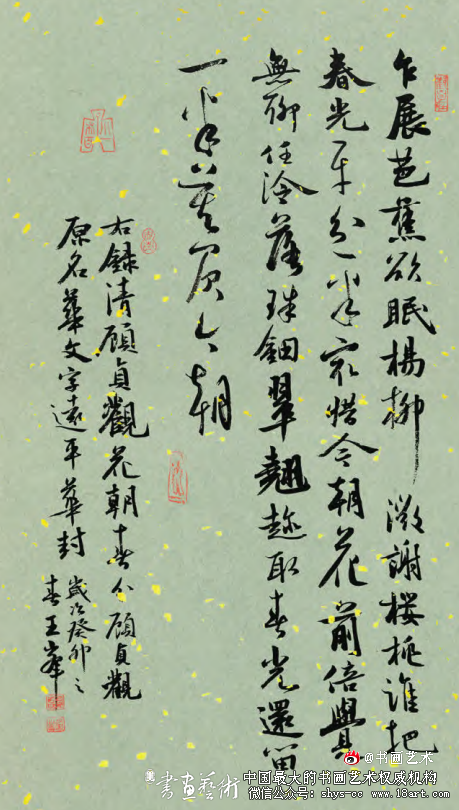 乍展芭蕉欲眠楊柳微謝櫻桃誰把
春光平分一半最惜今朝花前倍覺
無聊任冷落珠鈿翠翹趁取春光還留
一半莫負今朝
右錄清顧貞觀花朝春分顧貞觀
原名華文字遠平華封
歲次癸卯之
春王峰
@书画艺术
書畫藝術
中国最大的书画艺术权威机构
微信公众号: shys-cc www.18art.com